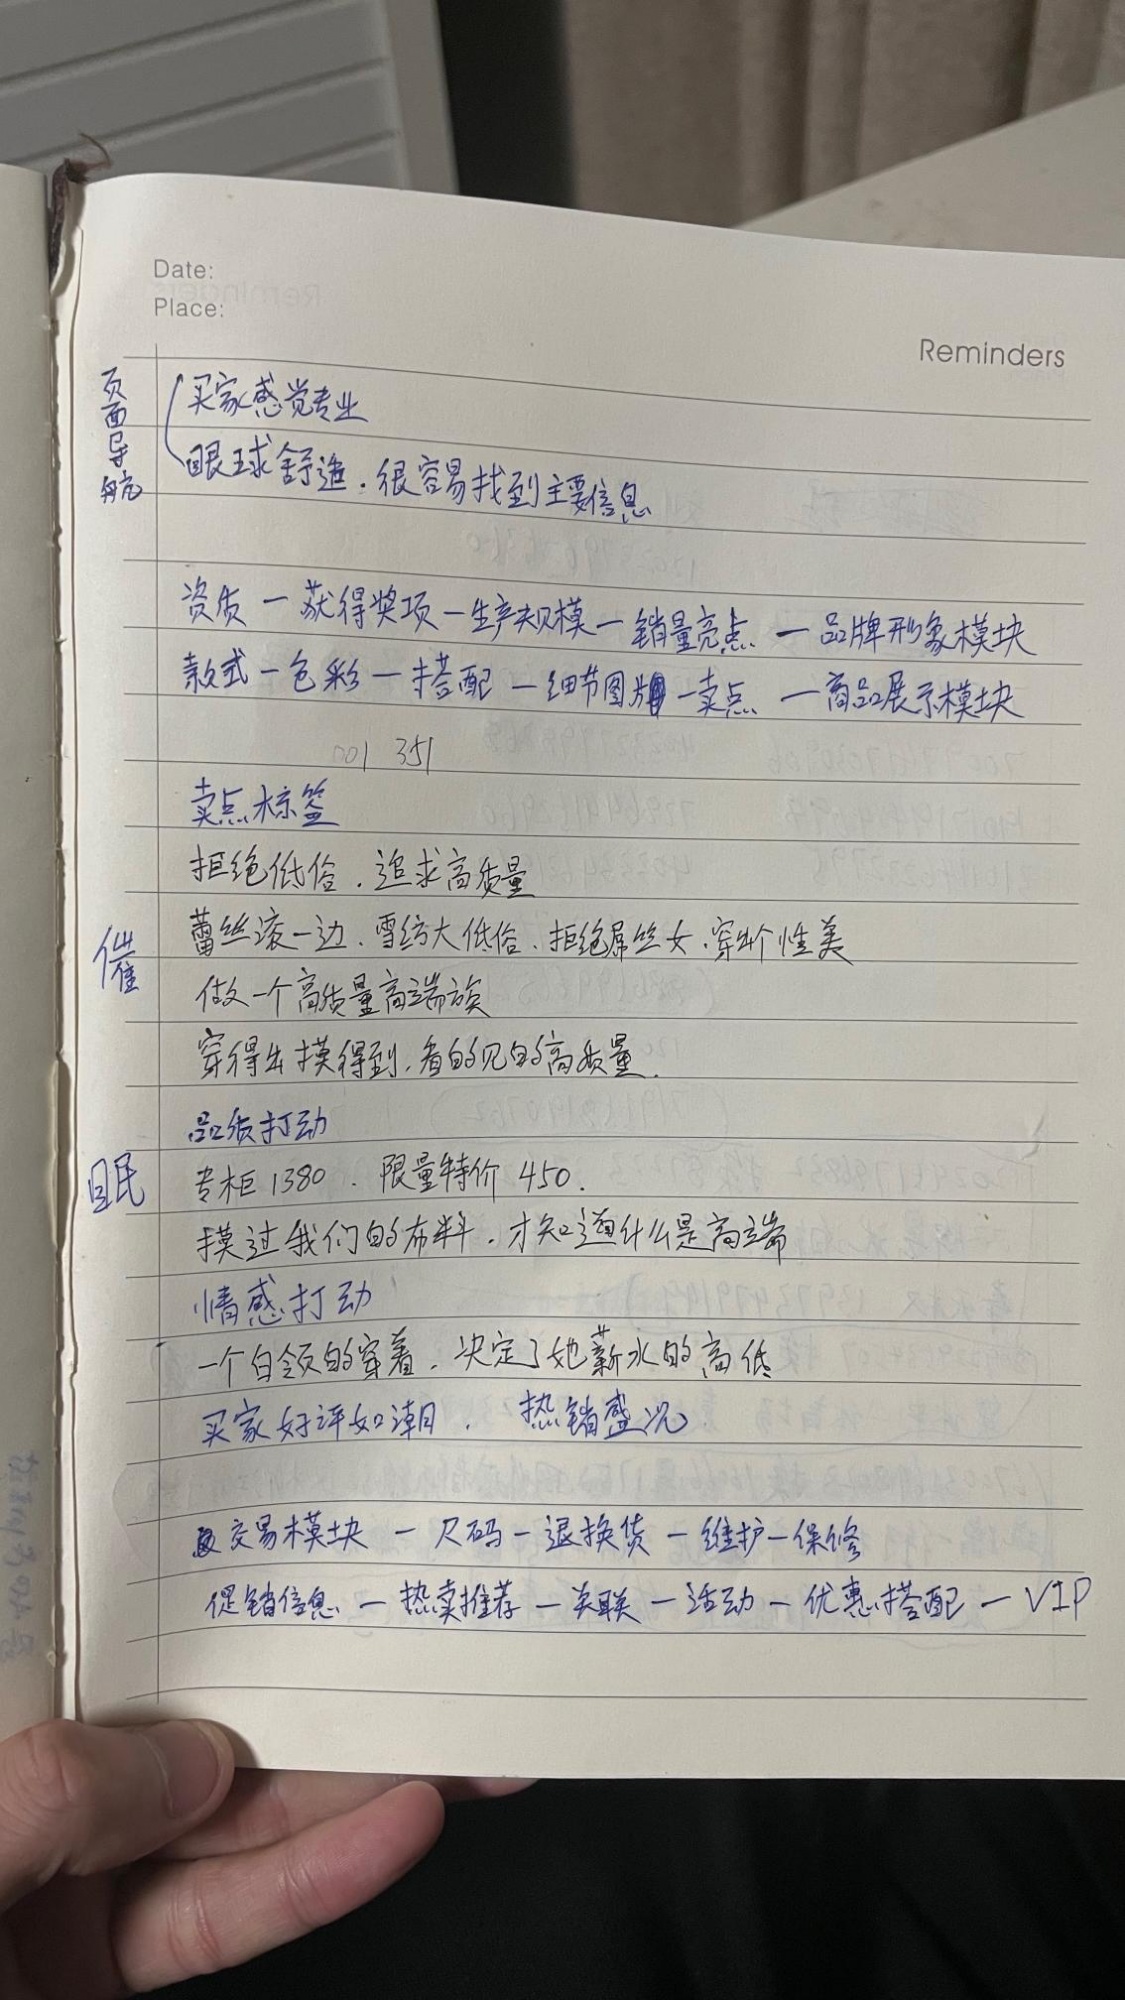 Date:
Place:
Reminders
页面导航
买家感觉专业
眼球舒适.很容易找到主要信息
资质一获得奖项一生产规模一销量亮点一品牌形象模块
款式一色彩一搭配一细节图一卖点一商品展示模块
001 351
卖点标签
拒绝低俗.追求高质量
蕾丝滚一边.雪纺大低俗.拒绝屌丝女.穿出个性美
催
做一个高质量高端族
穿得出摸得到.看的见的高质量.
品质打动
眠
专柜1380.限量特价450.
摸过我们的布料.才知道什么是高端
情感打动
一个白领的穿着.决定了她薪水的高低
买家好评如潮.热销盛况
交易模块一尺码一退换货一维护一保修
促销信息一热卖推荐一关联一活动一优惠搭配一VIP